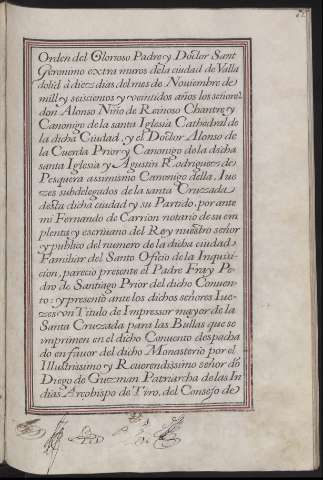 Orden del Glorioso Padre y Doctor Sant
Geronimo extra muros de la ciudad de Valla
dolid à diez dias del mes de Noviembre de
mill y seiscientos y veintidos años los señores
don Alonso Niño de Reinoso Chantre y
Canonigo de la santa Iglesia Cathedral de
la dicha Ciudad y el Doctor Alonso de
la Cuerda Prior y Canonigo de la dicha
santa Iglesia y Agustin Rodriguez de
Pesquera assimismo Canonigo della, Iue
zes subdelegados de la santa Cruzada
desta dicha ciudad y su Partido, por ante
mi Fernando de Carrion notario de su em
plenta y escriuano del Rey nuestro señor
y publico del numero de la dicha ciudad
Familiar del Santo Oficio de la Inquisi
cion, parecio presente el Padre Fray Pe
dro de Santiago Prior del dicho Conuen
to: y presentò ante los dichos señores Iue
zes un Titulo de Impressor mayor de la
Santa Cruzada para las Bullas que se
imprimen en el dicho Conuento despacha
do en favor del dicho Monasterio por el
Illustrissimo y Reuerendissimo señor dõ
Diego de Guzman Patriarcha de las In
dias Arçobispo de Tiro, del Consejo de